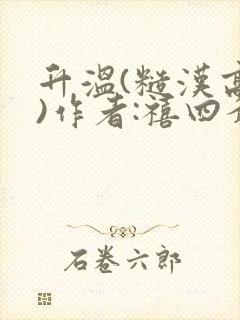 升溫(糙漢高
)作者:禧四
石卷六郎